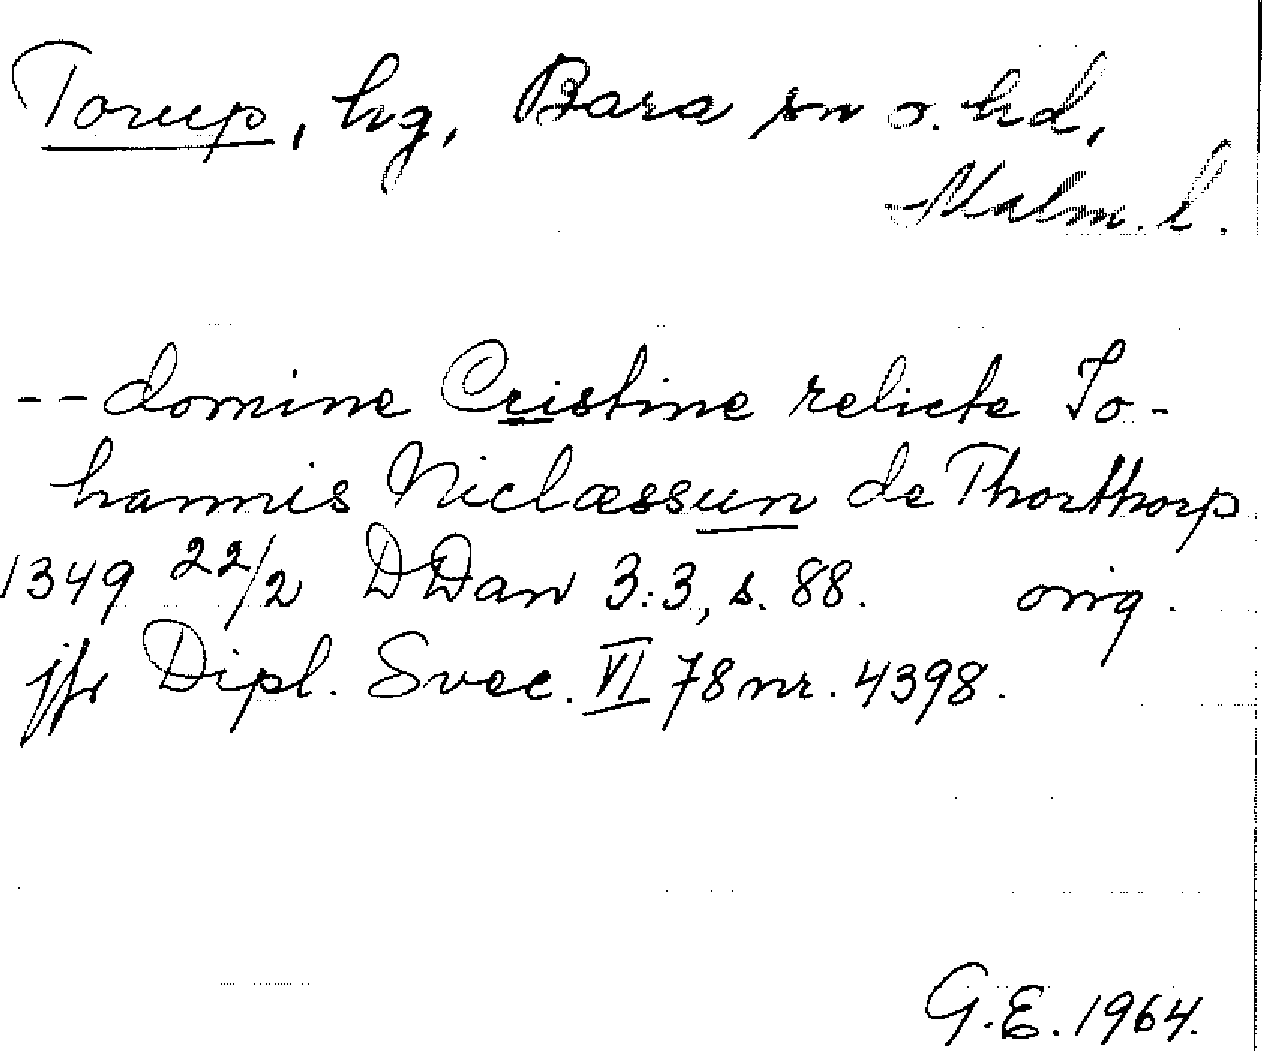 Torup, hg, Bara sn o. hd,
Malm. l.
-- domine Cristine relicte Jo-
hannis Niclæssun de Thorthorp
1349 22/2 DDan 3:3, s. 88. orig.
jfr Dipl. Svec. VI 78 nr. 4398.
G.E. 1964.